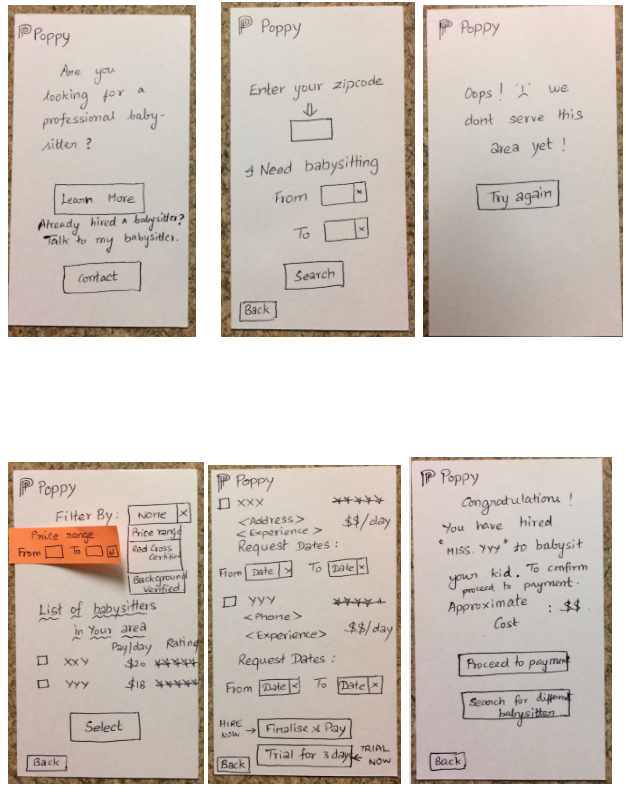 Poppy
Are you
looking for a
professional baby-
sitter ?
Learn More
Already hired a babysitter?
Talk to my babysitter.
Contact
Poppy
Enter your zipcode
I Need babysitting
From
To
Search
Back
Poppy
Oops ! :( we
dont serve this
area yet !
Try again
Poppy
Filter By: None x
Price range
From To
Price range
Red Cross
Certified
Background
Verified
List of babysitters
in Your area
Pay/day Rating
XXY $20 *****
YYY $18 *****
Select
Back
Poppy
XXX *****
<Address> $$/day
<Experience>
Request Dates :
From Date x To Date x
YYY *****
<Phone>
<Experience> $$/day
Request Dates :
From Date x To Date x
HIRE NOW → Finalise & Pay
Back Trial for 3 day ← TRIAL NOW
Poppy
Congratulations !
You have hired
"MISS. YYY" to babysit
your kid. To cnfirm
proceed to payment.
Approximate : $$
Cost
Proceed to payment
Search for different
babysitter
Back